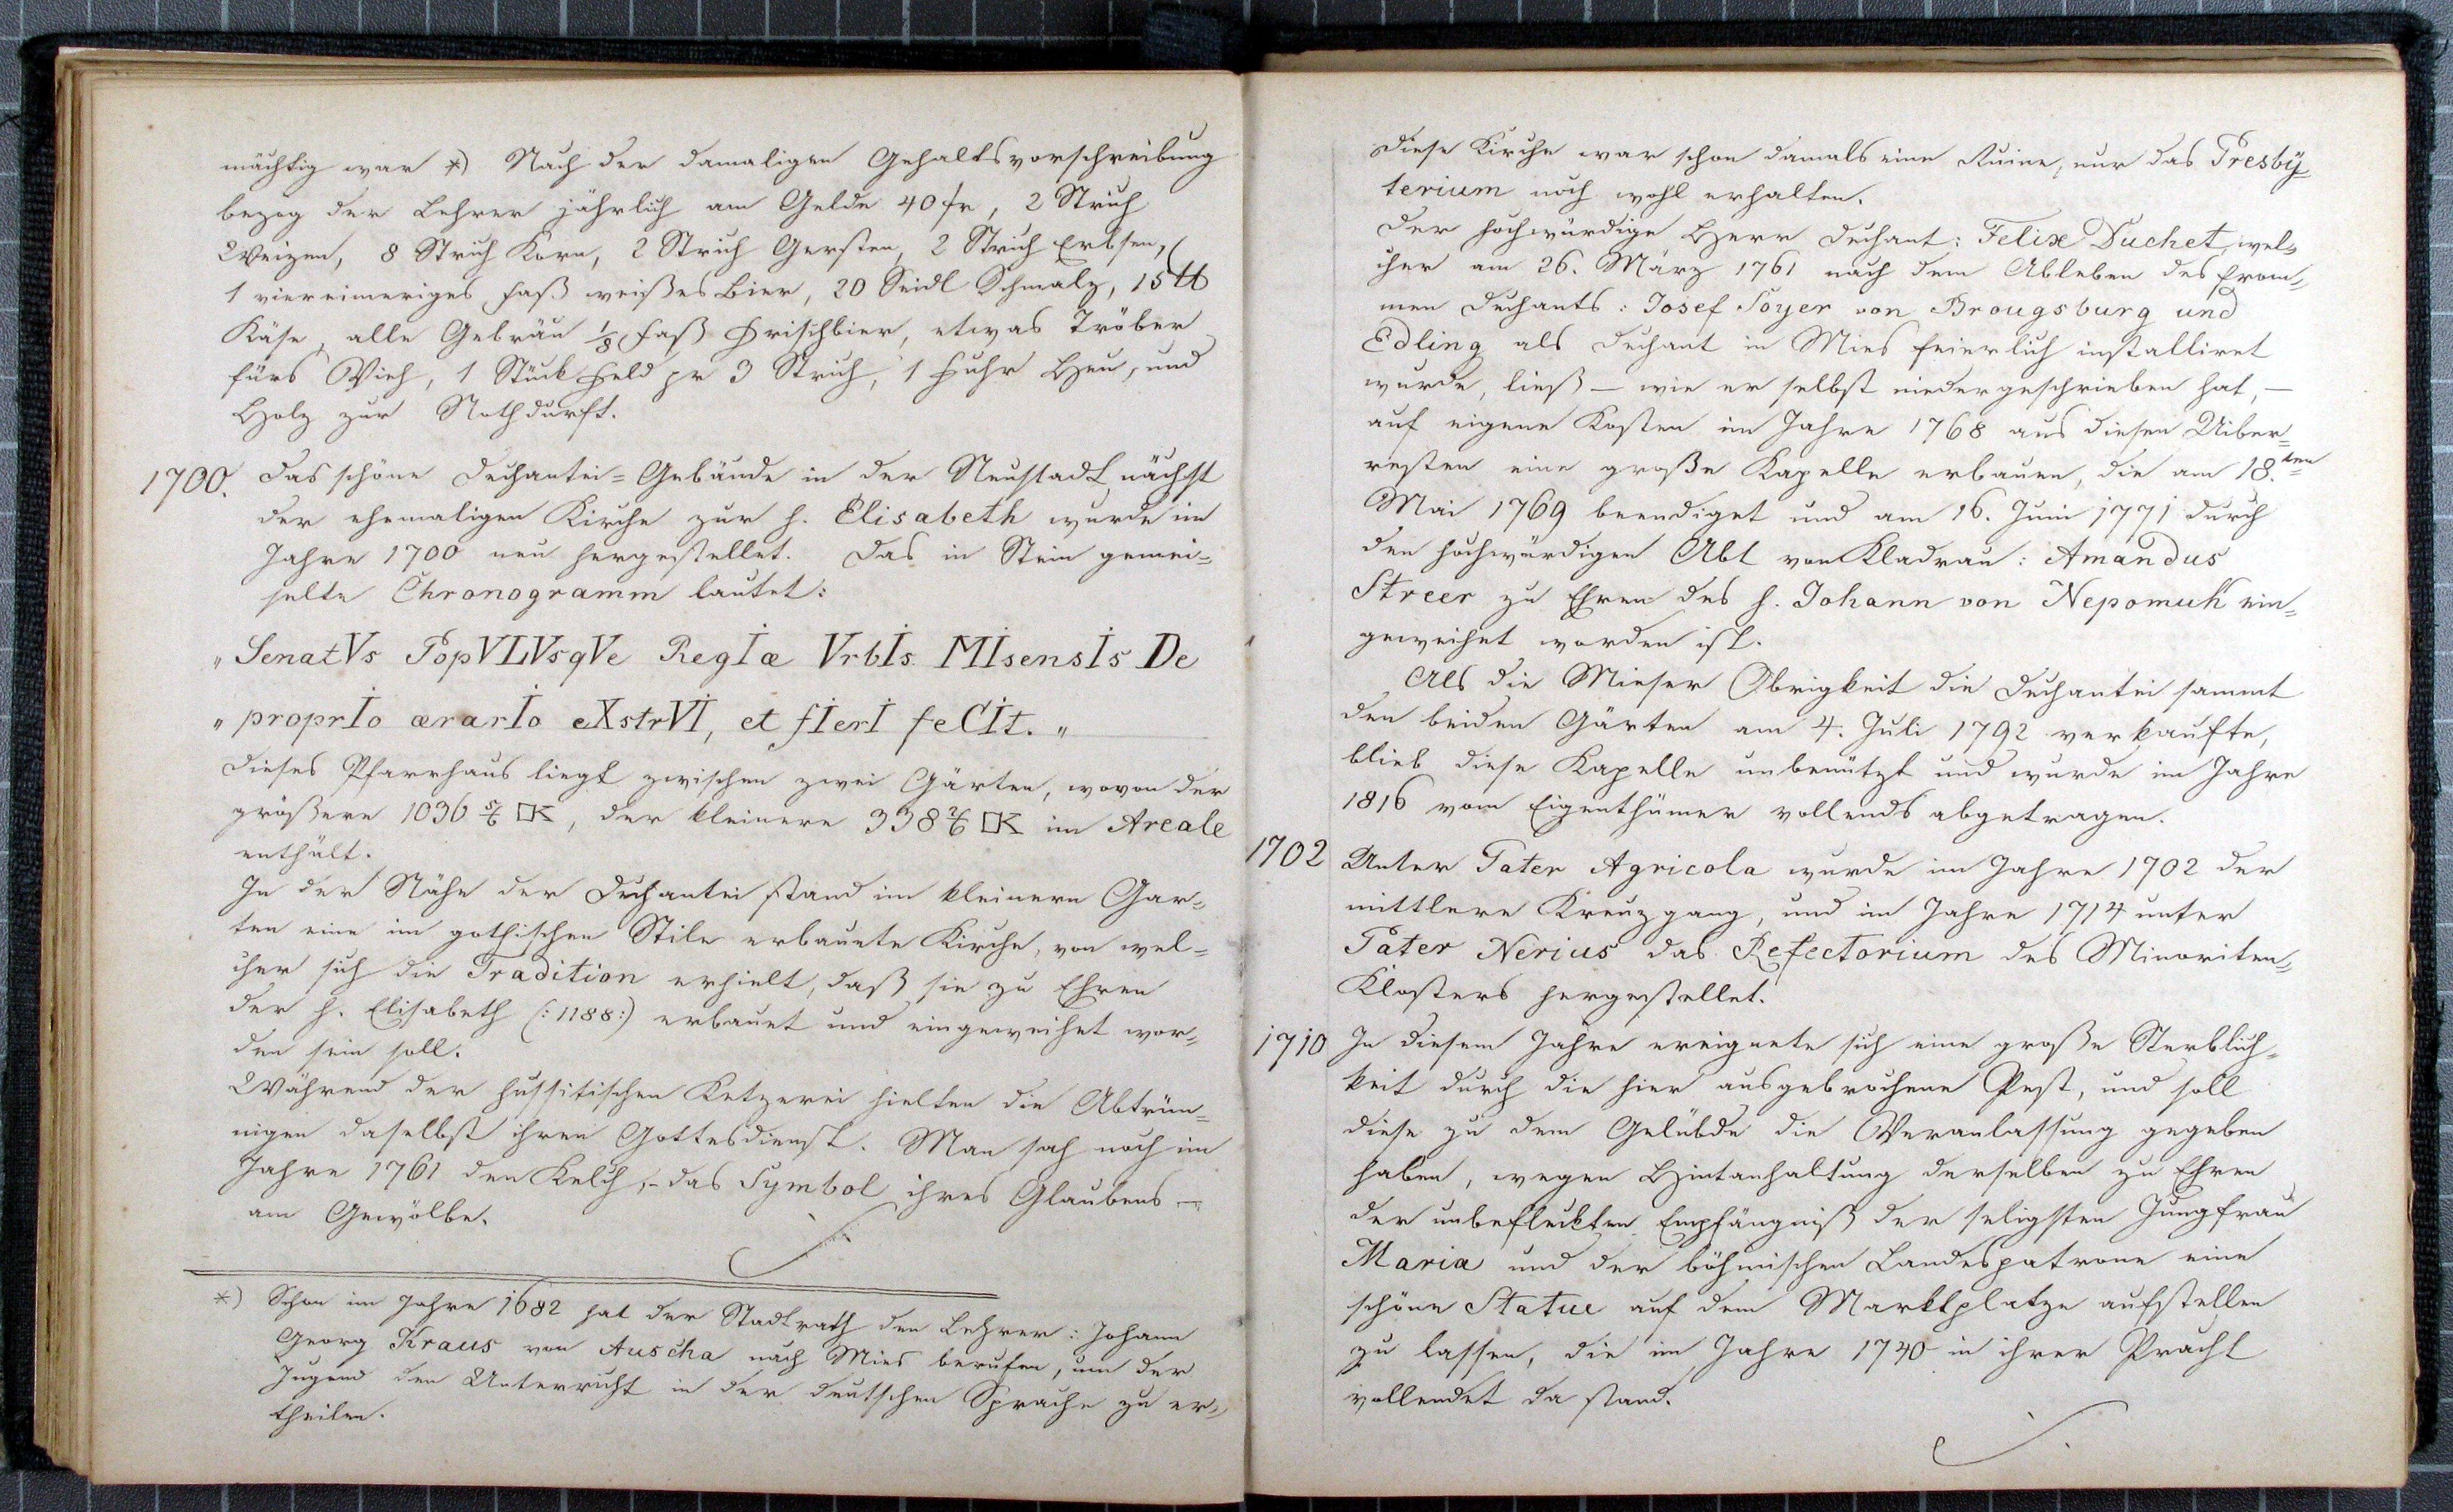 mächtig war *) Nach der damaligen Gehaltsvorschreibung
bezog der Lehrer jährlich am Gelde 40 fr, 2 Strich
Weizen, 8 Strich Korn, 2 Strich Gersten, 2 Strich Erbsen,
1 viereimeriges Faß weißes Bier, 20 Seidl Schmalz, 15 ℔
Käse, alle Gebräu 1/8 Faß Frischbier, etwas Tröber
fürs Vieh, 1 Stück Feld pr 3 Strich, 1 Fuhr Heu, und
Holz zur Nothdurft.
1700. Das schöne Dechantei=Gebäude in der Neustadt nächst
der ehemaligen Kirche zur h. Elisabeth wurde im
Jahre 1700 neu hergestellet. Das in Stein gemei=
selte Chronogramm lautet:
„SenatVs PopVLVsqVe Regİæ Vrbİs Mİsensİs De
„proprİo ærarİo eXstrVİ, et fİerİ feCİt.„
Dieses Pfarrhaus liegt zwischen zwei Gärten, wovon der
größere 1036 5/6 □K, der kleinere 338 2/6 □K im Areale
enthält.
In der Nähe der Dechantei stand im kleinern Gar=
ten eine im gothischen Stile erbauete Kirche, von wel=
cher sich die Tradition erhielt, daß sie zu Ehren
der h. Elisabeth (:1188:) erbauet und eingeweihet wor=
den sein soll.
Während der hussitischen Ketzerei hielten die Abtrün=
nigen daselbst ihren Gottesdienst. Man sah noch im
Jahre 1761 den Kelch, – das Symbol ihres Glaubens –
am Gewölbe.
*) Schon im Jahre 1682 hat der Stadtrath den Lehrer: Johann
Georg Kraus von Auscha nach Mies berufen, um der
Jugend den Unterricht in der deutschen Sprache zu er=
theilen.
Diese Kirche war schon damals eine Ruine, nur das Presby=
terium noch wohl erhalten.
Der hochwürdige Herr Dechant: Felix Duchet, wel=
cher am 26. März 1761 nach dem Ableben des from=
men Dechants: Josef Poyer von Brougsburg und
Edling als Dechant in Mies feierlich installiret
wurde, ließ – wie er selbst niedergeschrieben hat, –
auf eigene Kosten im Jahre 1768 aus diesen Uiber=
resten eine große Kapelle erbauen, die am 18.ten
Mai 1769 beendiget und am 16. Juni 1771 durch
den hochwürdigen Abt von Kladrau: Amandus
Streer zu Ehren des h. Johann von Nepomuk ein=
geweihet worden ist.
Als die Mieser Obrigkeit die Dechantei sammt
den beiden Gärten am 4. Juli 1792 verkaufte,
blieb diese Kapelle unbenützt und wurde im Jahre
1816 vom Eigenthümer vollends abgetragen.
1702 Unter Pater Agricola wurde im Jahre 1702 der
mittlere Kreuzgang, und im Jahre 1714 unter
Pater Nerius das Refectorium des Minoriten=
Klosters hergestellet.
1710 In diesem Jahre ereignete sich eine große Sterblich=
keit durch die hier ausgebrochene Pest, und soll
diese zu dem Gelübde die Veranlassung gegeben
haben, wegen Hintanhaltung derselben zu Ehren
der unbefleckten Empfängniß der seligsten Jungfrau
Maria und der böhmischen Landespatrone eine
schöne Statue auf dem Marktplatze aufstellen
zu lassen, die im Jahre 1740 in ihrer Pracht
vollendet da stand.